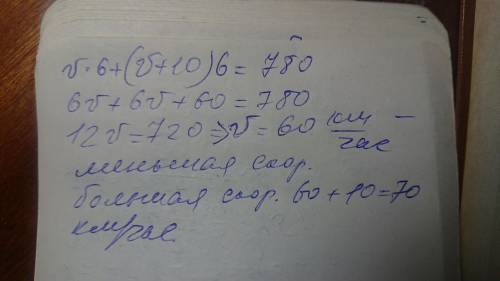 v·6+(v+10)6= 780
6v+6v+60=780
12v=720⇒v=60 км/час –
меньшая скор.
большая скор. 60+10=70
км/час